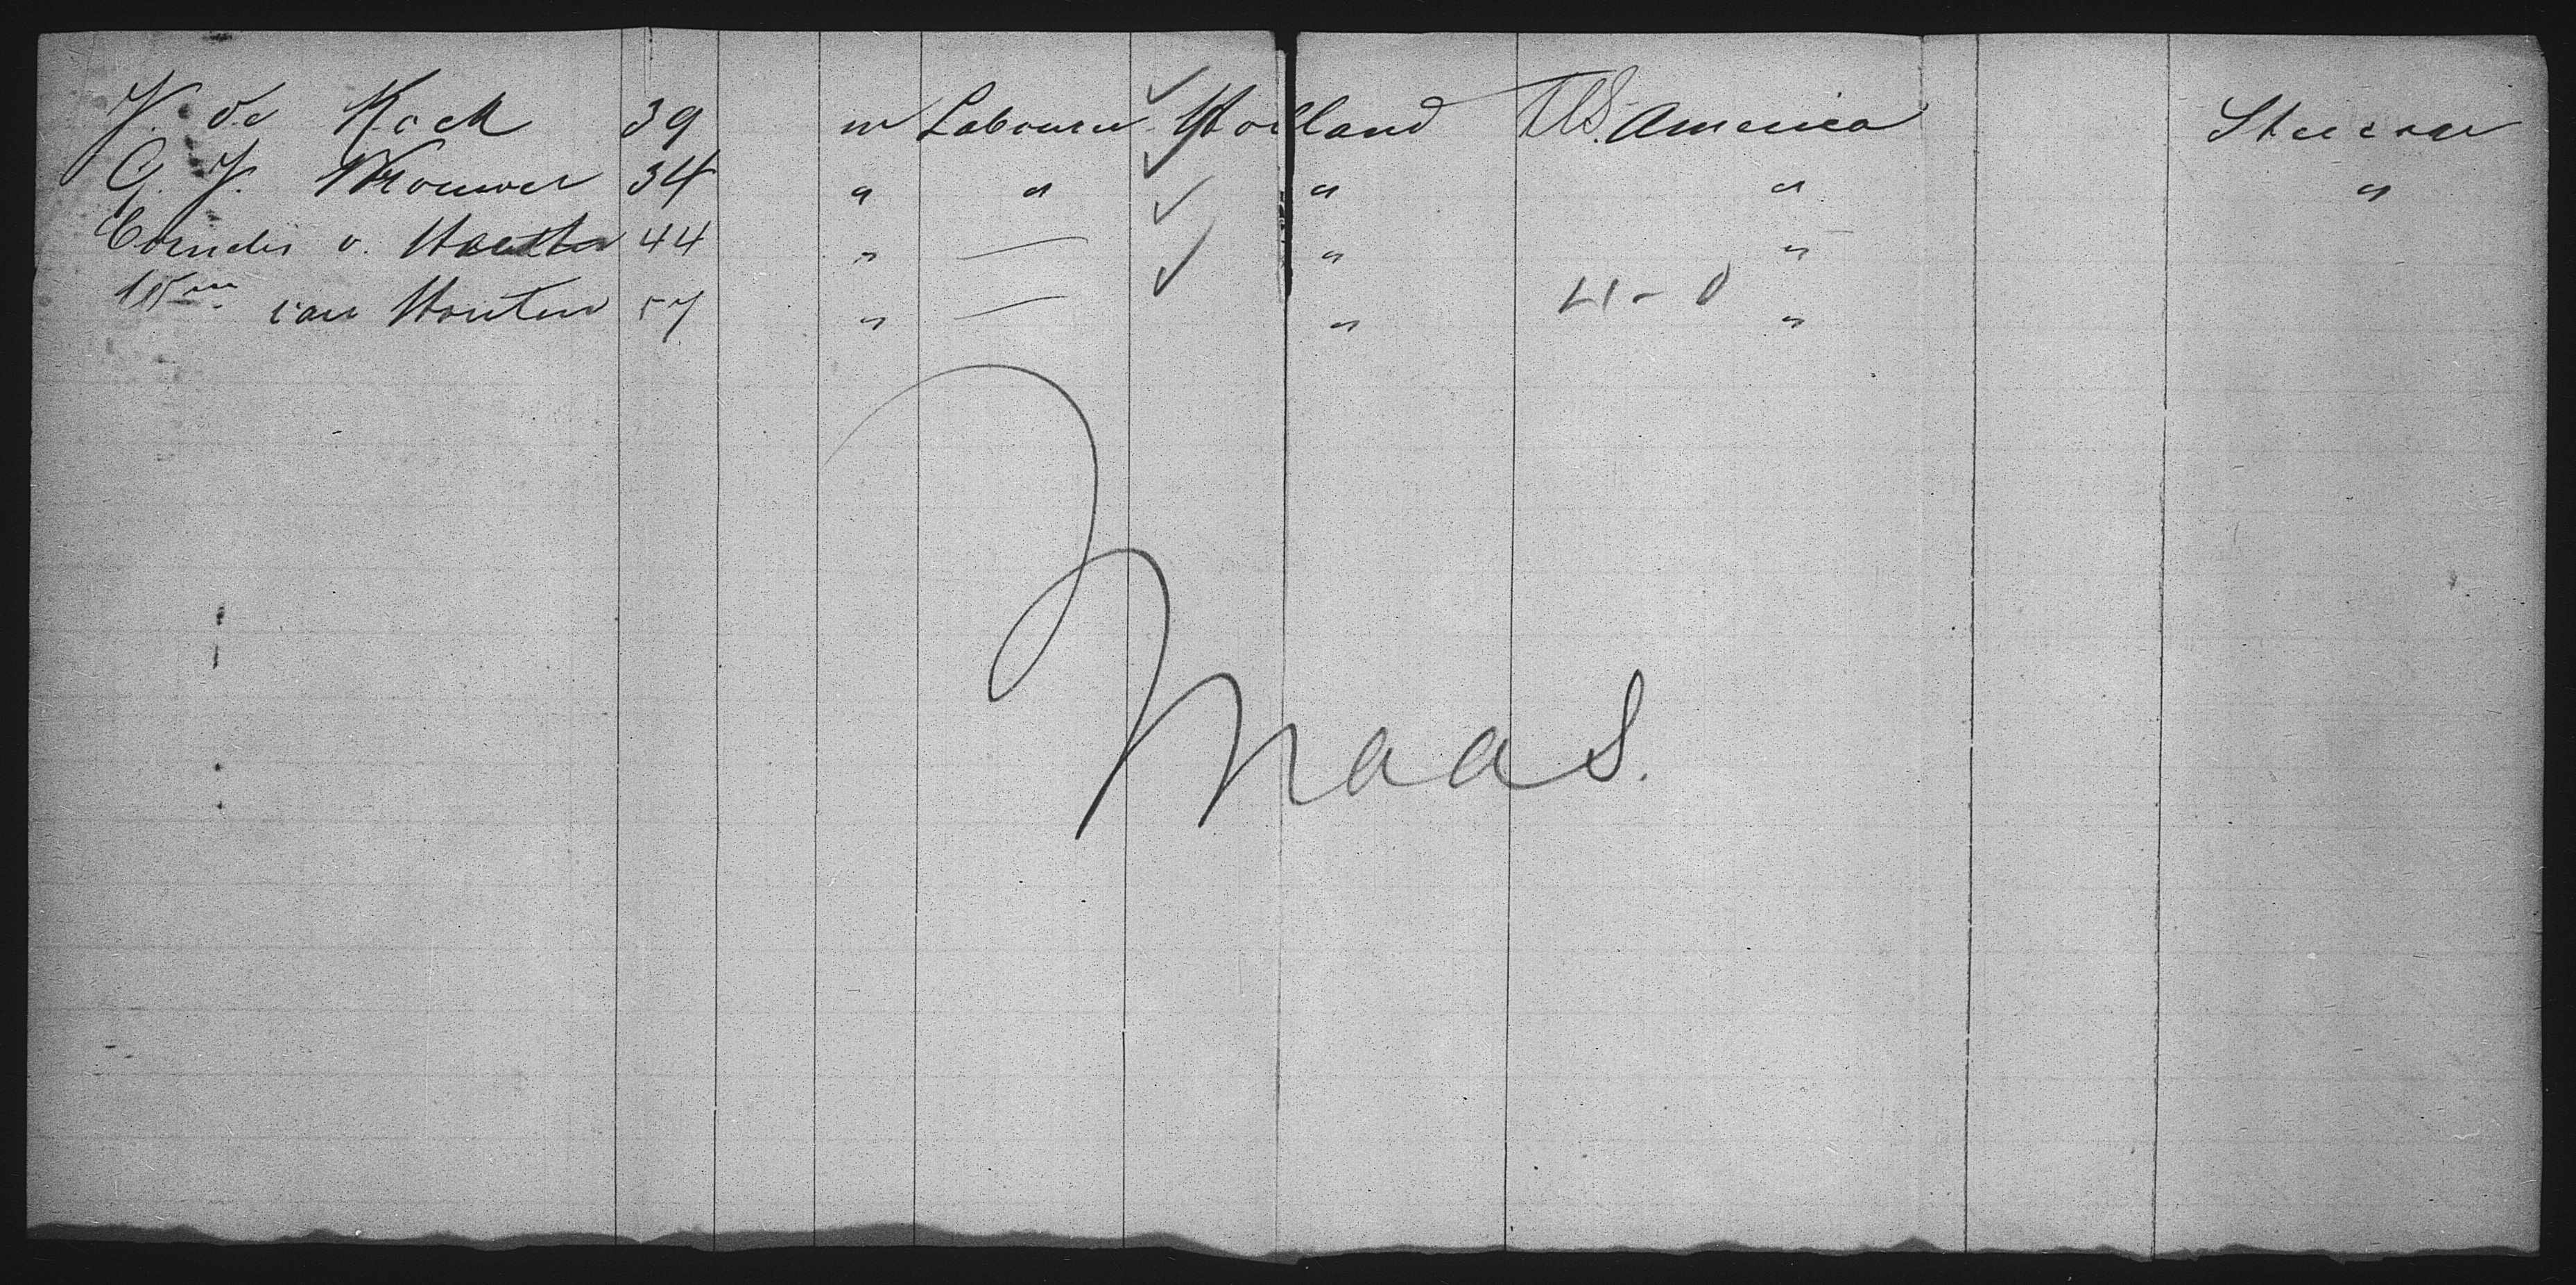 J. de Kock 39 m Labourer Holland U.S. America Steerage
G. J. Brouwer 34 " " " " "
Cornelis v. 44 " — " "
Wm van Houten 57 " — " "
41 - 0
Maas.